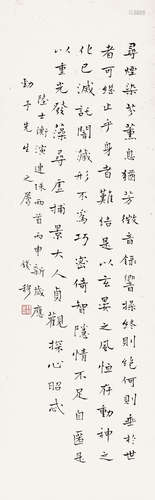 尋煙染芬薰息猶芳徵音錄響操終則絕何則垂於世
者可繼止乎身者難結是以玄晏之風恒存動神之
化已滅託闇藏形不為巧密倚智隱情不足自匿是
以重光發藻尋虛捕景大人貞觀探心昭忒
陸士衡演連珠兩首丙申新歲應
先生之屬 錢穆